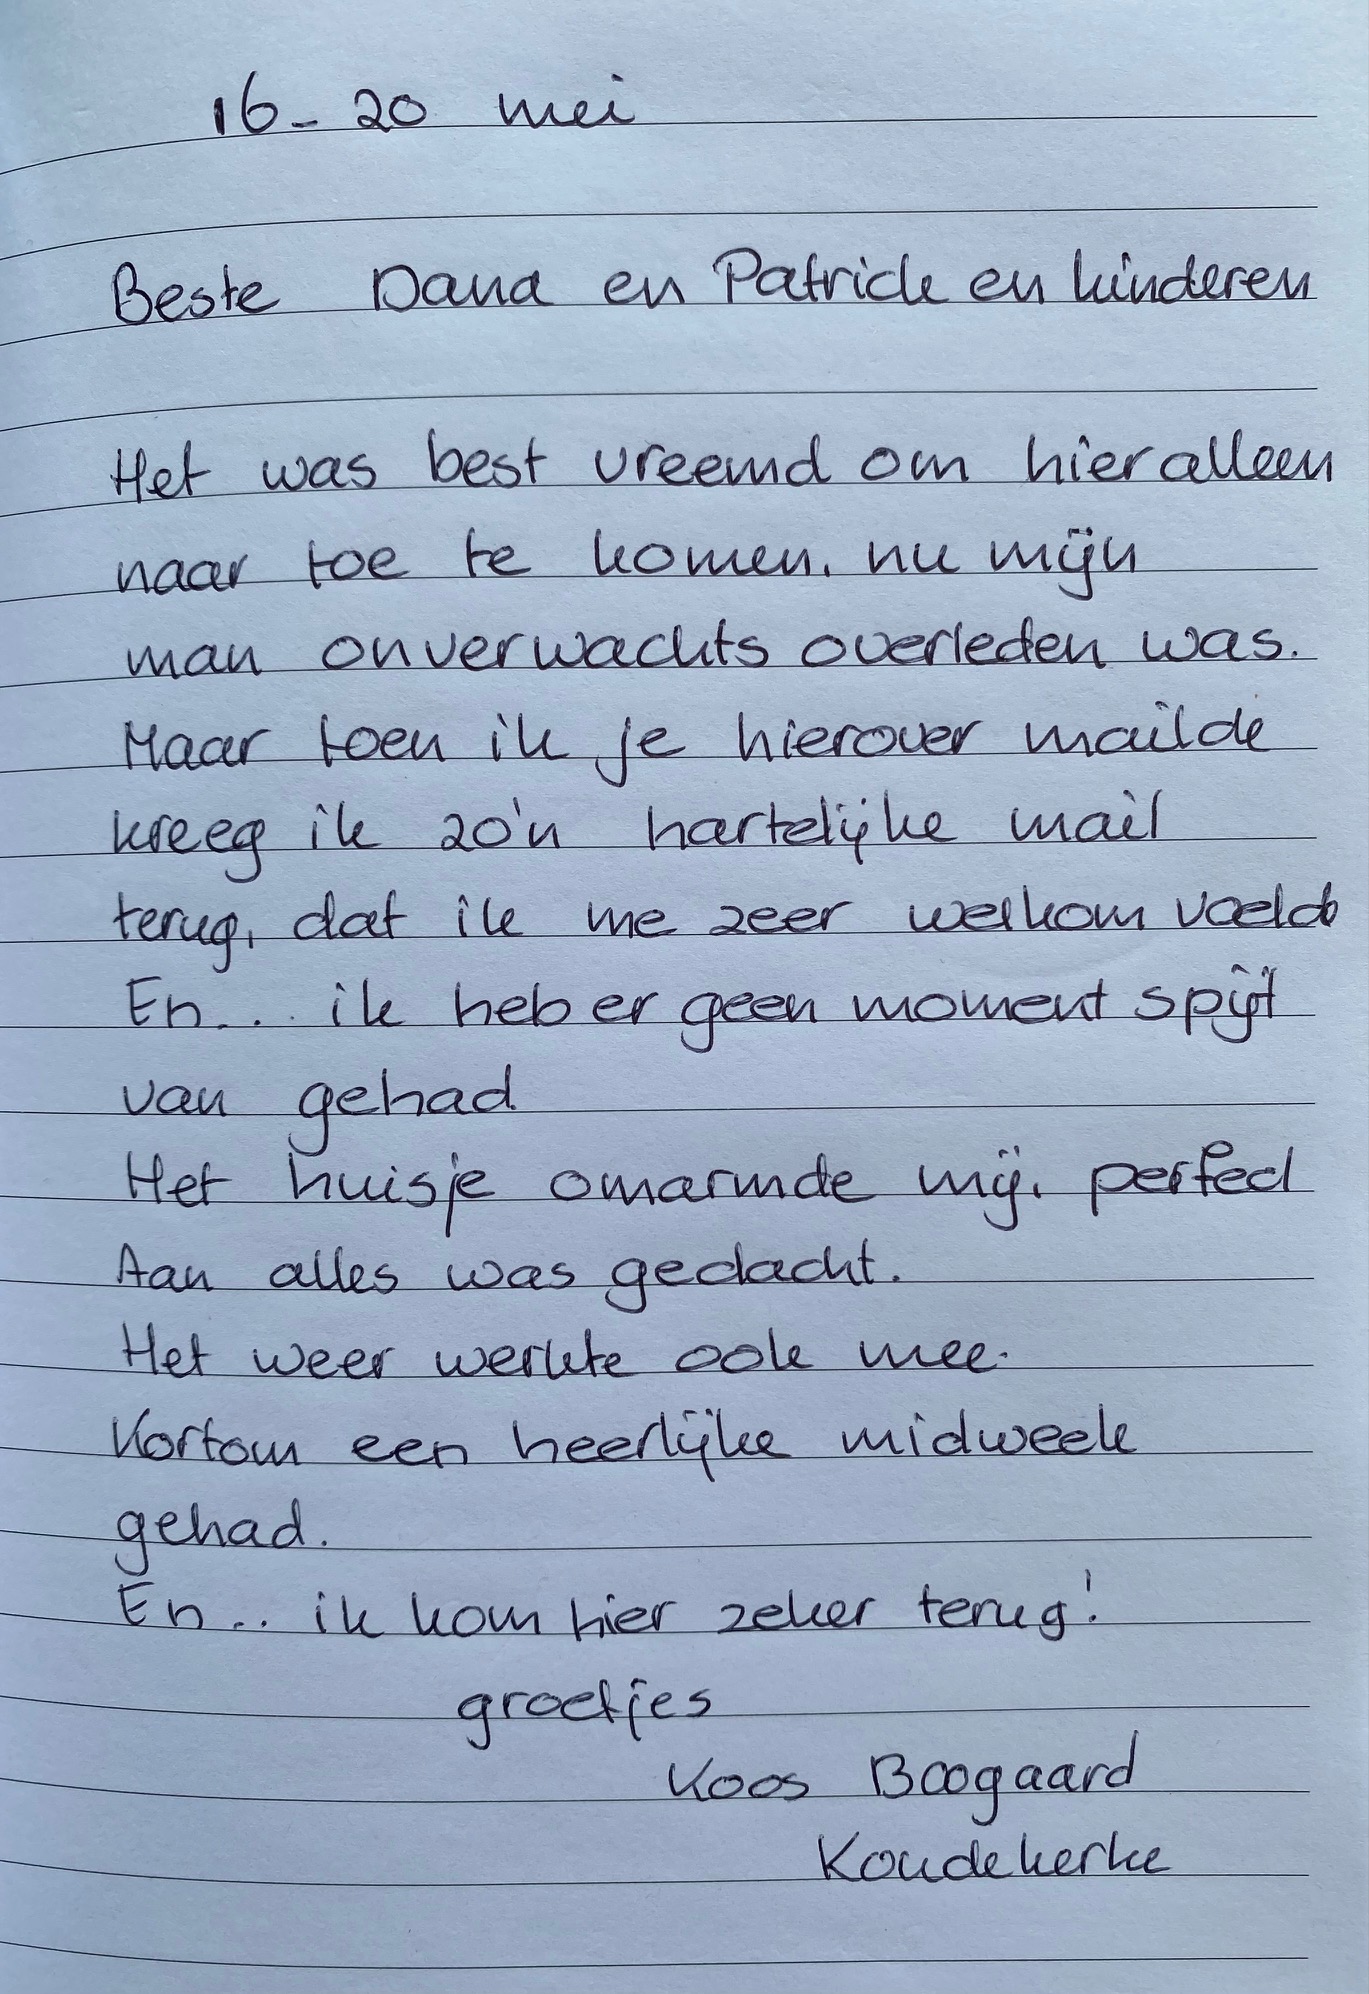 16 - 20 mei
Beste Dana en Patrick en kinderen
Het was best vreemd om hier alleen
naar toe te komen, nu mijn
man onverwachts overleden was.
Maar toen ik je hierover mailde
kreeg ik zo'n hartelijke mail
terug, dat ik me zeer welkom voelde
En... ik heb er geen moment spijt
van gehad
Het huisje omarmde mij, perfect
Aan alles was gedacht.
Het weer werkte ook mee.
Kortom een heerlijke midweek
gehad.
En.. ik kom hier zeker terug!
groetjes
Koos Boogaard
Koudekerke